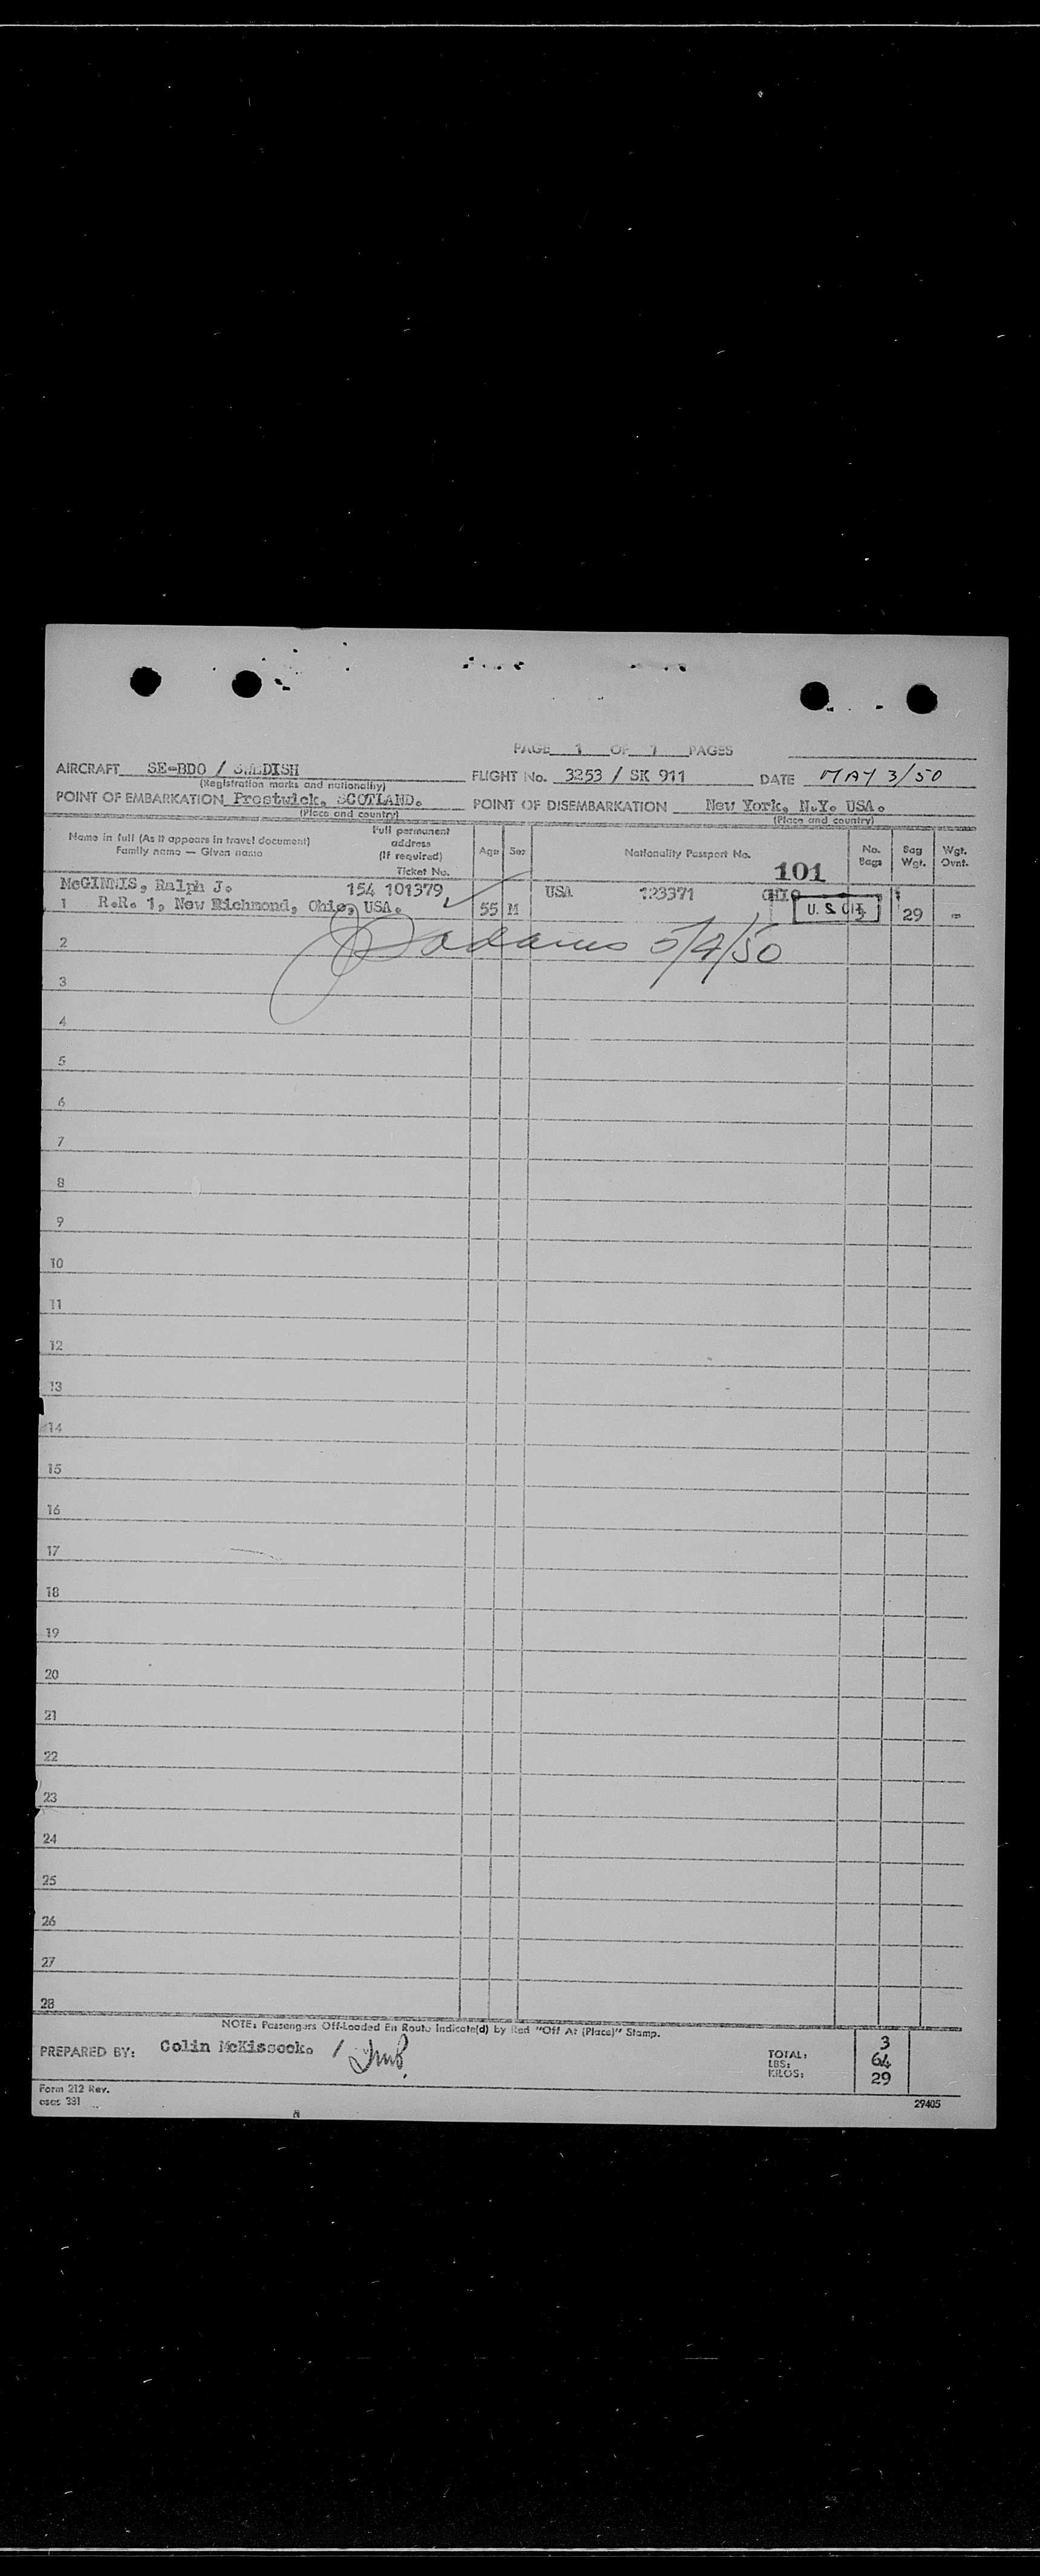 PAGE 1 OF 1 PAGES
AIRCRAFT SE-BDO / SWEDISH FLIGHT No. 3253 / SK 911 DATE MAY 3/50
(Registration marks and nationality)
POINT OF EMBARKATION Prestwick, SCOTLAND. POINT OF DISEMBARKATION New York, N.Y. USA.
(Place and country) (Place and country)
Name in full (As it appears in travel document) Family name — Given name Full permanent address (If required) Ticket No. Age Sex Nationality Passport No. No. Bags Bag Wgt. Wgt. Ovnt.
101
McGINNIS, Ralph J. 154 101379 USA 123371
1 R.R. 1, New Richmond, Ohio, USA. 55 M U. S. CIT. 3 29 -
2 adams 5/4/50
3
4
5
6
7
8
9
10
11
12
13
14
15
16
17
18
19
20
21
22
23
24
25
26
27
28
NOTE: Passengers Off-Loaded En Route Indicate(d) by Red "Off At (Place)" Stamp.
PREPARED BY: Colin McKissock. /
TOTAL: 3
LBS: 64
KILOS: 29
Form 212 Rev.
29405